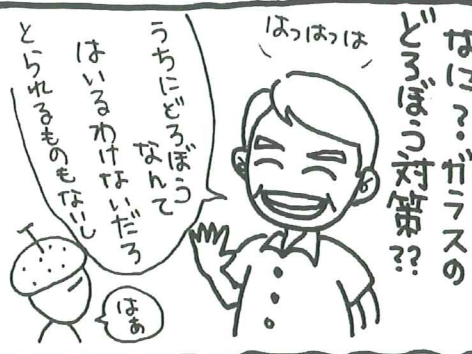 なに？・ガラスの
どろぼう対策??
はっはっは
うちにどろぼう
なんて
はいるわけないだろ
とられるものもないし
はぁ